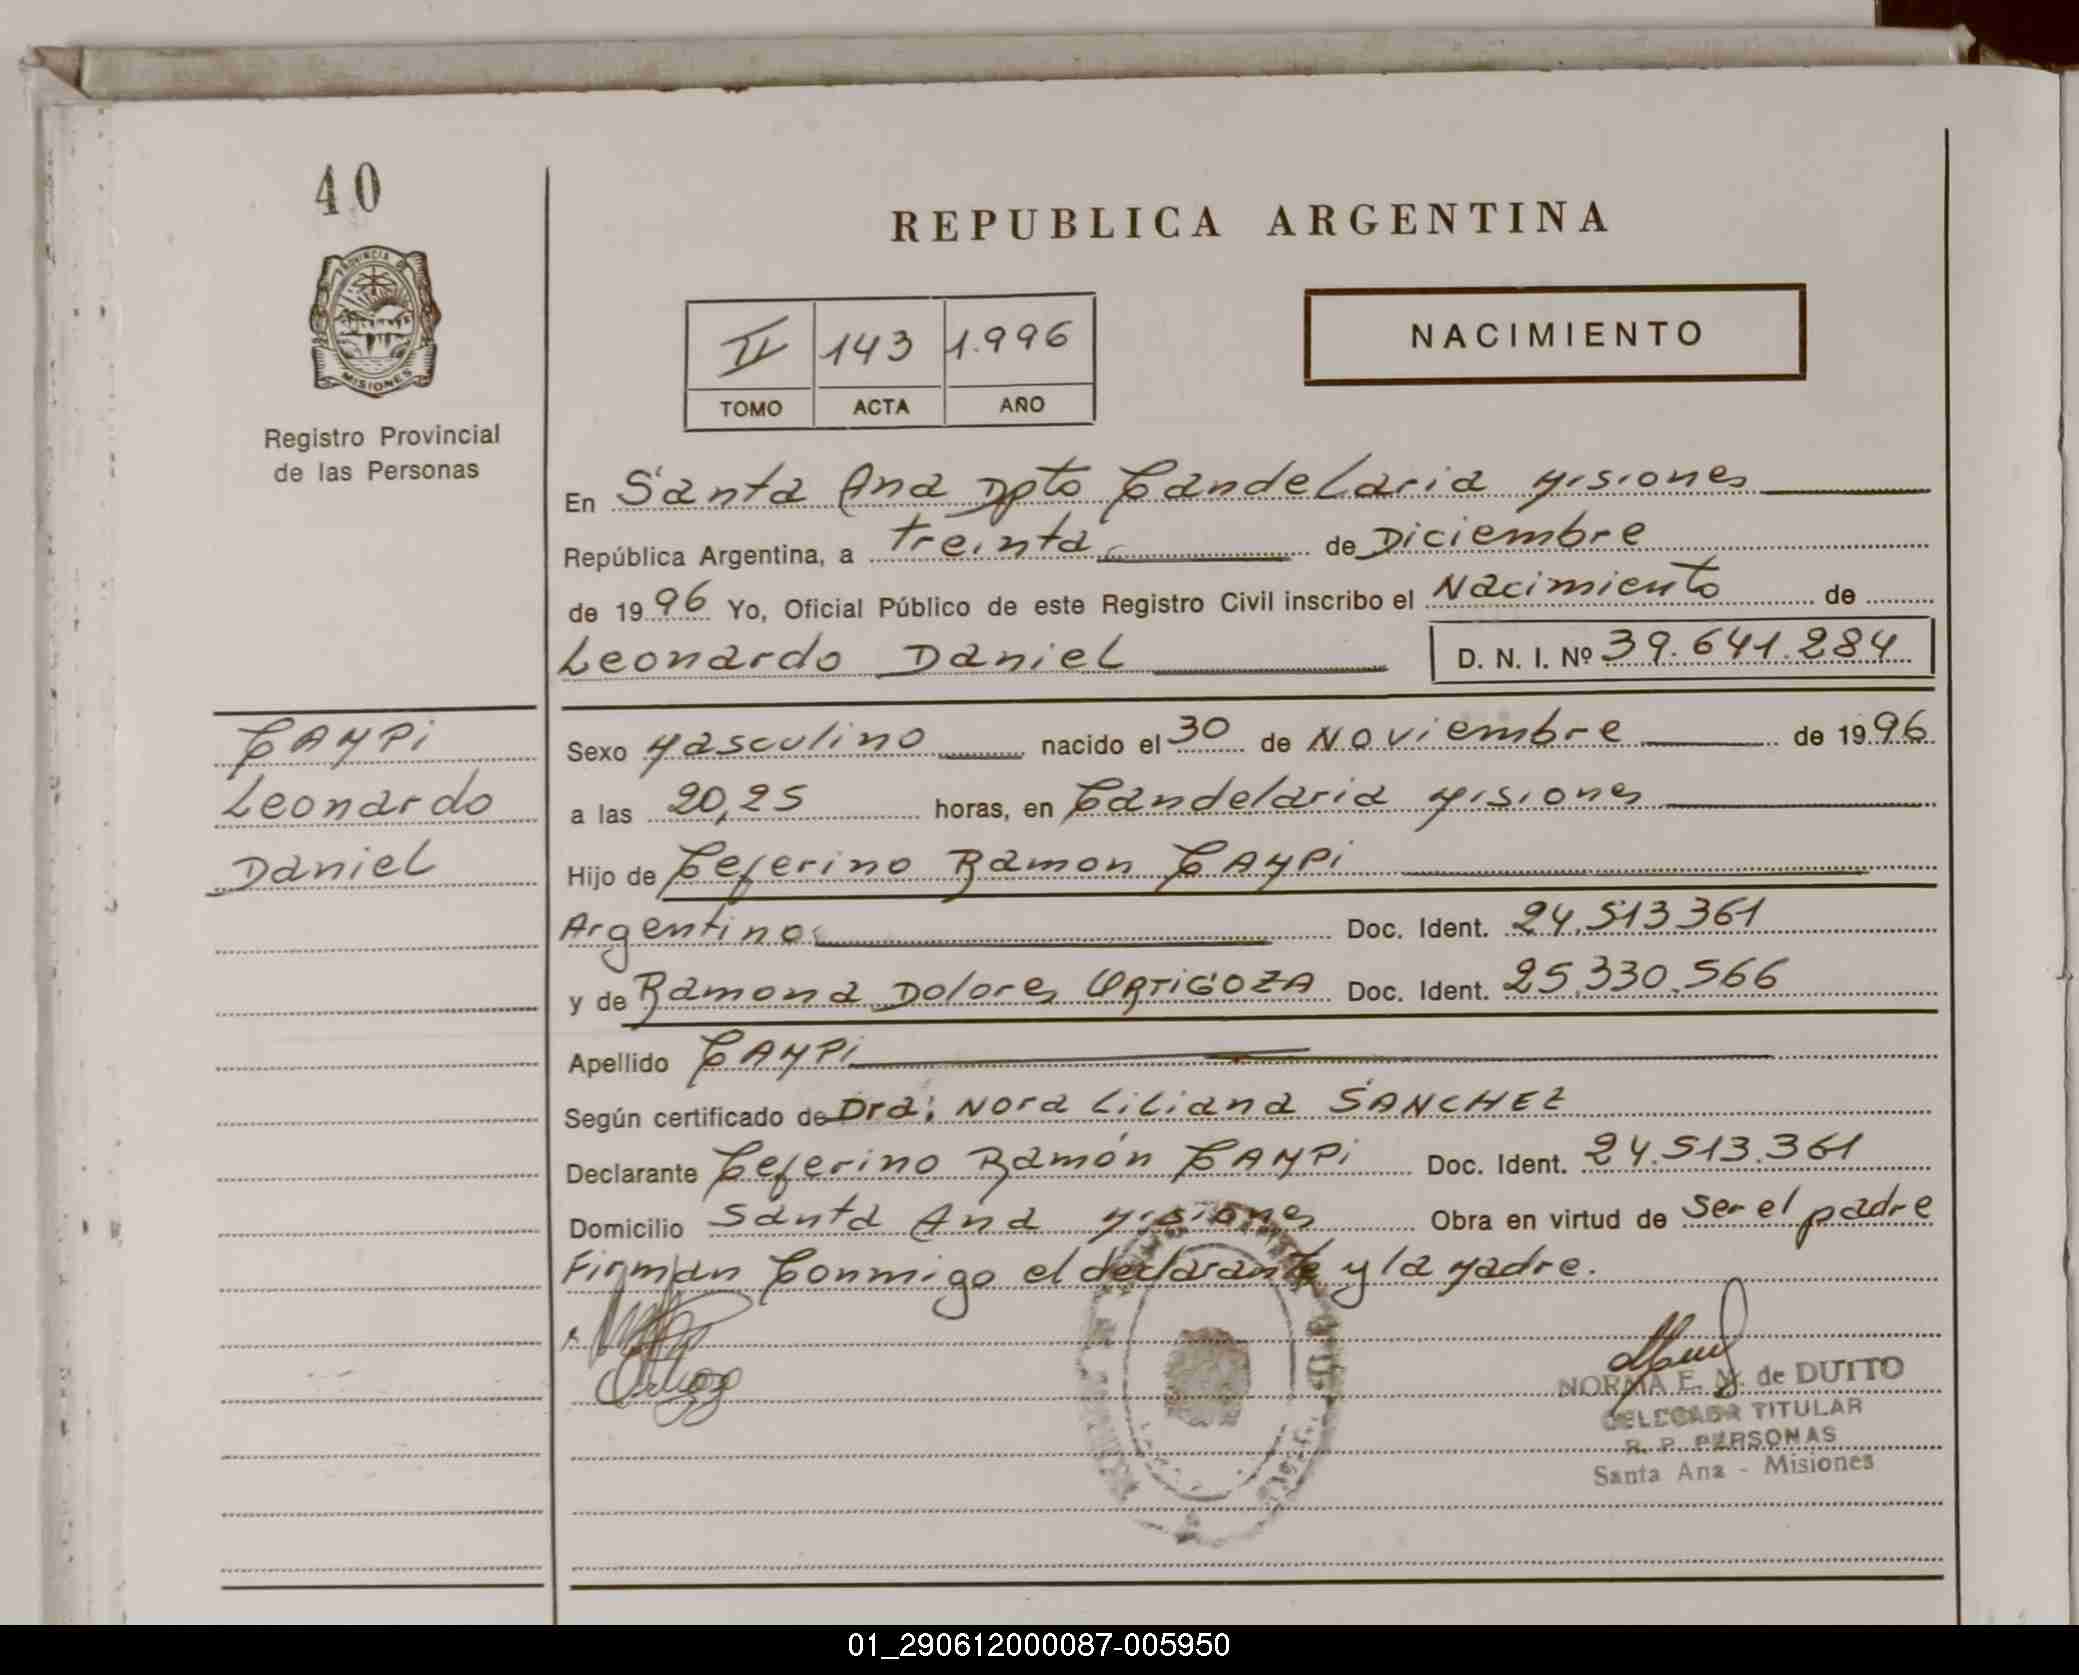 40
PROVINCIA DE
MISIONES
Registro Provincial
de las Personas
REPUBLICA ARGENTINA
II 143 1.996
TOMO ACTA AÑO
NACIMIENTO
En Santa Ana Dpto Candelaria Misiones
República Argentina, a treinta de Diciembre
de 1996 Yo, Oficial Público de este Registro Civil inscribo el Nacimiento de
Leonardo Daniel D. N. I. Nº 39.641.284
CAMPi
Leonardo
Daniel
Sexo Masculino nacido el 30 de Noviembre de 1996
a las 20,25 horas, en Candelaria Misiones
Hijo de Ceferino Ramon CAMPi
Argentino Doc. Ident. 24.513361
y de Ramona Dolores ORTiGOZA Doc. Ident. 25.330.566
Apellido CAMPi
Según certificado de Dra; Nora Liliana SANCHEZ
Declarante Ceferino Ramón CAMPi Doc. Ident. 24.513.361
Domicilio Santa Ana Misiones Obra en virtud de Ser el padre
Firman Conmigo el declarante y la Madre.
NORMA E. de DUTTO
DELEGADA TITULAR
R. P. PERSONAS
Santa Ana - Misiones
01_290612000087-005950